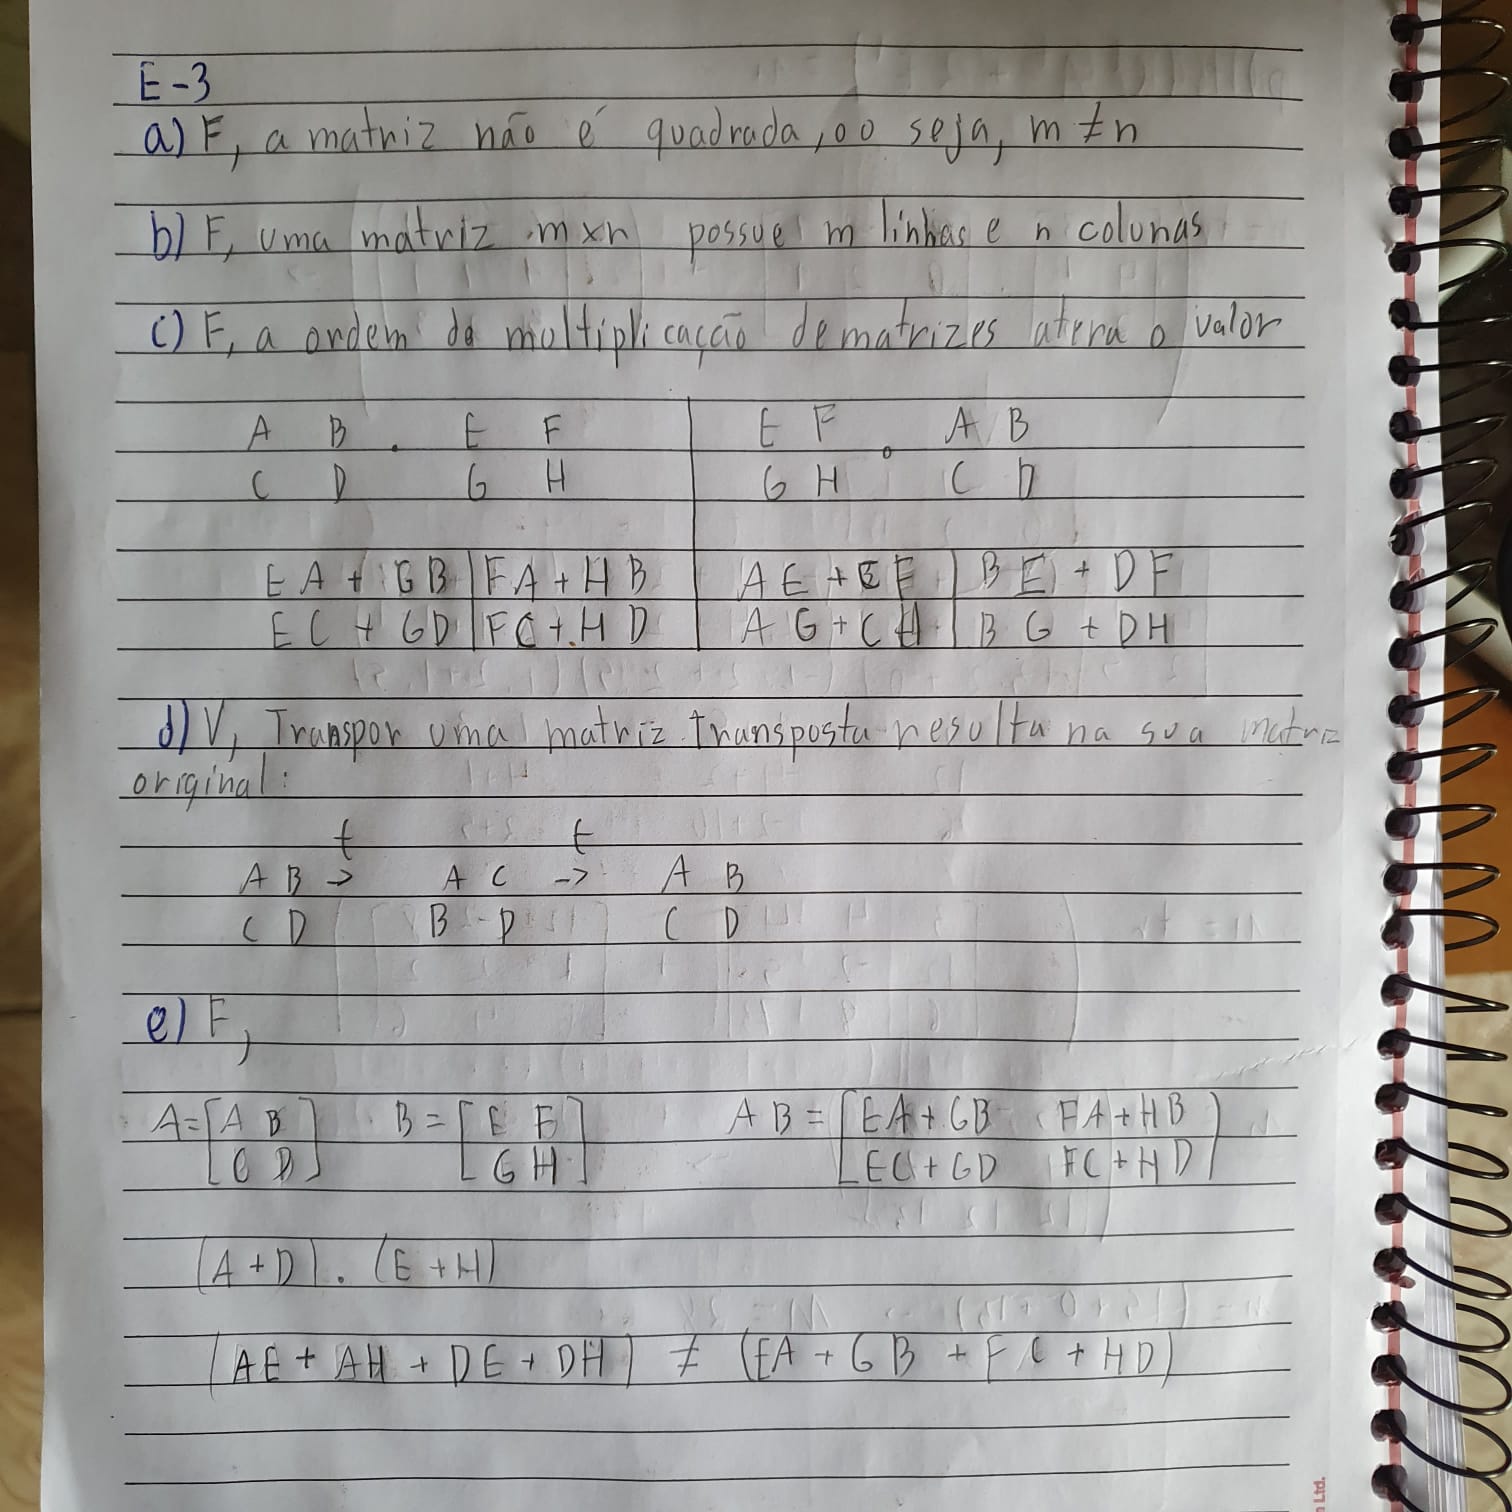 E-3
a) F, a matriz não é quadrada, ou seja, m ≠ n
b) F, uma matriz mxn possue m linhas e n colunas
c) F, a ordem da multiplicação de matrizes atera o valor
A B . E F | E F . A B
C D G H | G H C D
EA + GB | FA + HB | AE + CF | BE + DF
EC + GD | FC + HD | AG + CH | BG + DH
d) V, Transpor uma matriz transposta resulta na sua matriz
original:
t t
A B -> A C -> A B
C D B D C D
e) F,
A = [A B] B = [E F] AB = [EA + GB FA + HB]
[C D] [G H] [EC + GD FC + HD]
(A + D) . (E + H)
(AE + AH + DE + DH) ≠ (EA + GB + FC + HD)
Ltd.